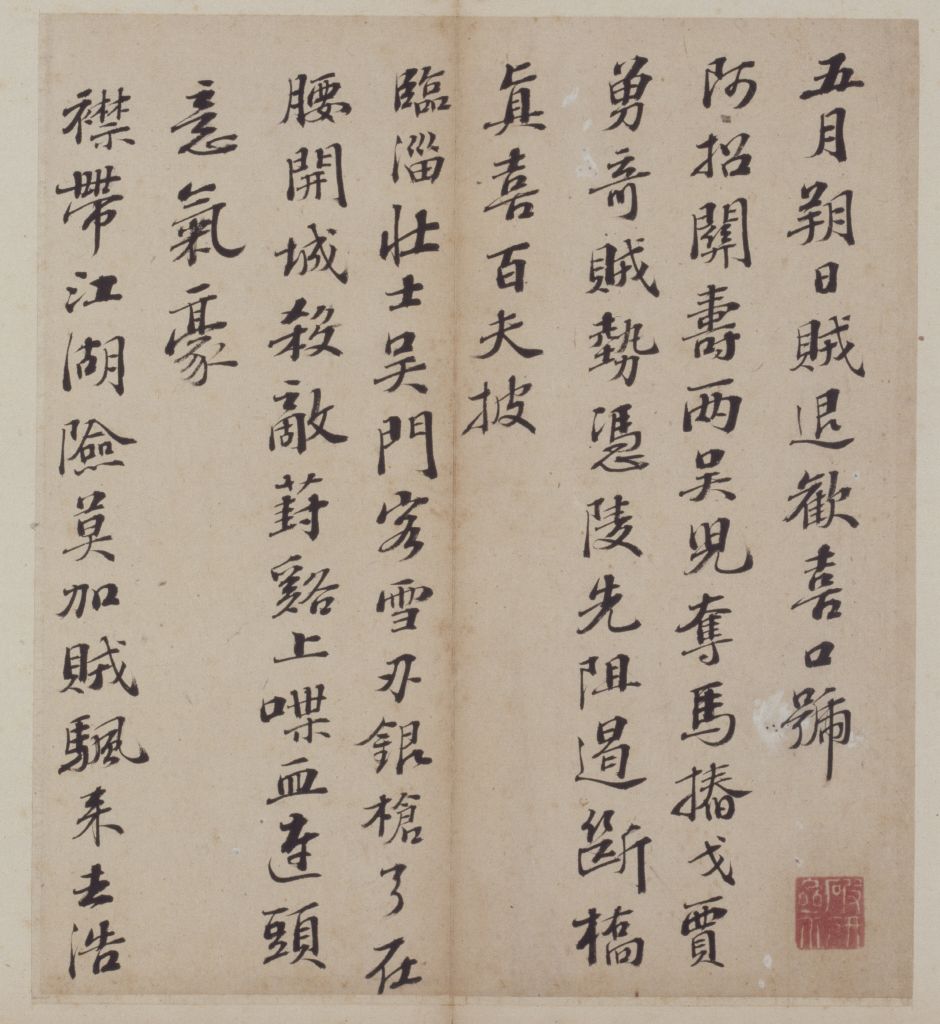 五月朔日賊退歡喜口號
阿招關壽两吴児奪馬摏戈賈
勇奇賊勢憑陵先阻遏断橋
真喜百夫披
臨淄壮士吴門客雪刃銀槍弓在
腰開城殺敵葑谿上喋血連頭
意氣豪
襟帶江湖險莫加賊颿来去浩